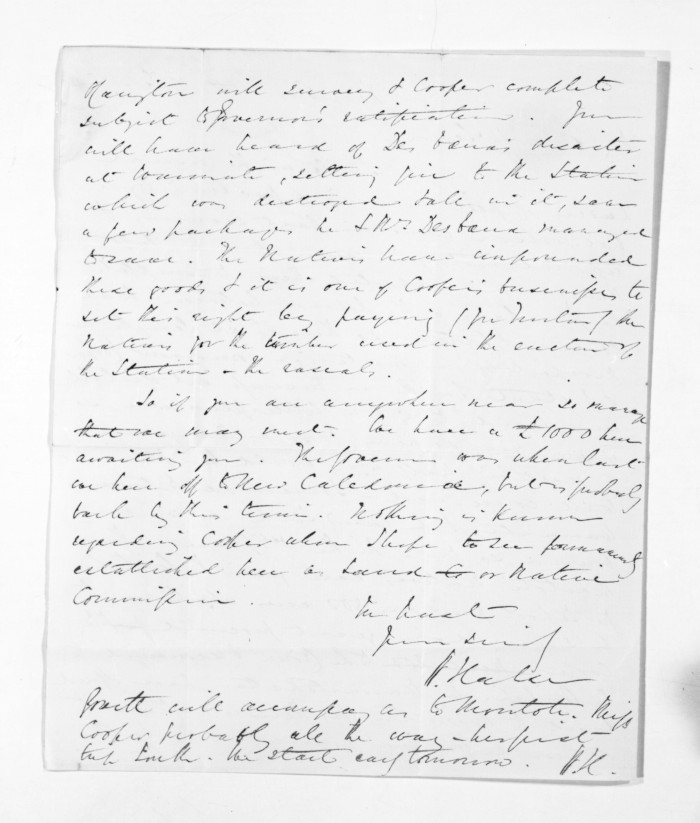 will survey & Cooper complete
subject to Governor's ratification. You
will have heard of Des disaster
at, setting fire to the Station
which was destroyed & all in it, save
a few packages he & Mrs Des managed
to save. The Natives have impounded
these goods & it is one of Cooper's businesses to
set this right by paying (for the
Natives for the timber used in the erection of
the Station – the rascals.
So if you are anywhere near so manage
that we may meet. We have a £1000 here
awaiting you. The Governor was when last
we hear off to New Caledonia, but is probably
back by this time. Nothing is known
regarding Cooper whom I hope to see permanently
established here as Land or Native
Commissioner.
In haste
Yours
will accompany us to. Miss
Cooper probably all the way –
South. We start early tomorrow. H.